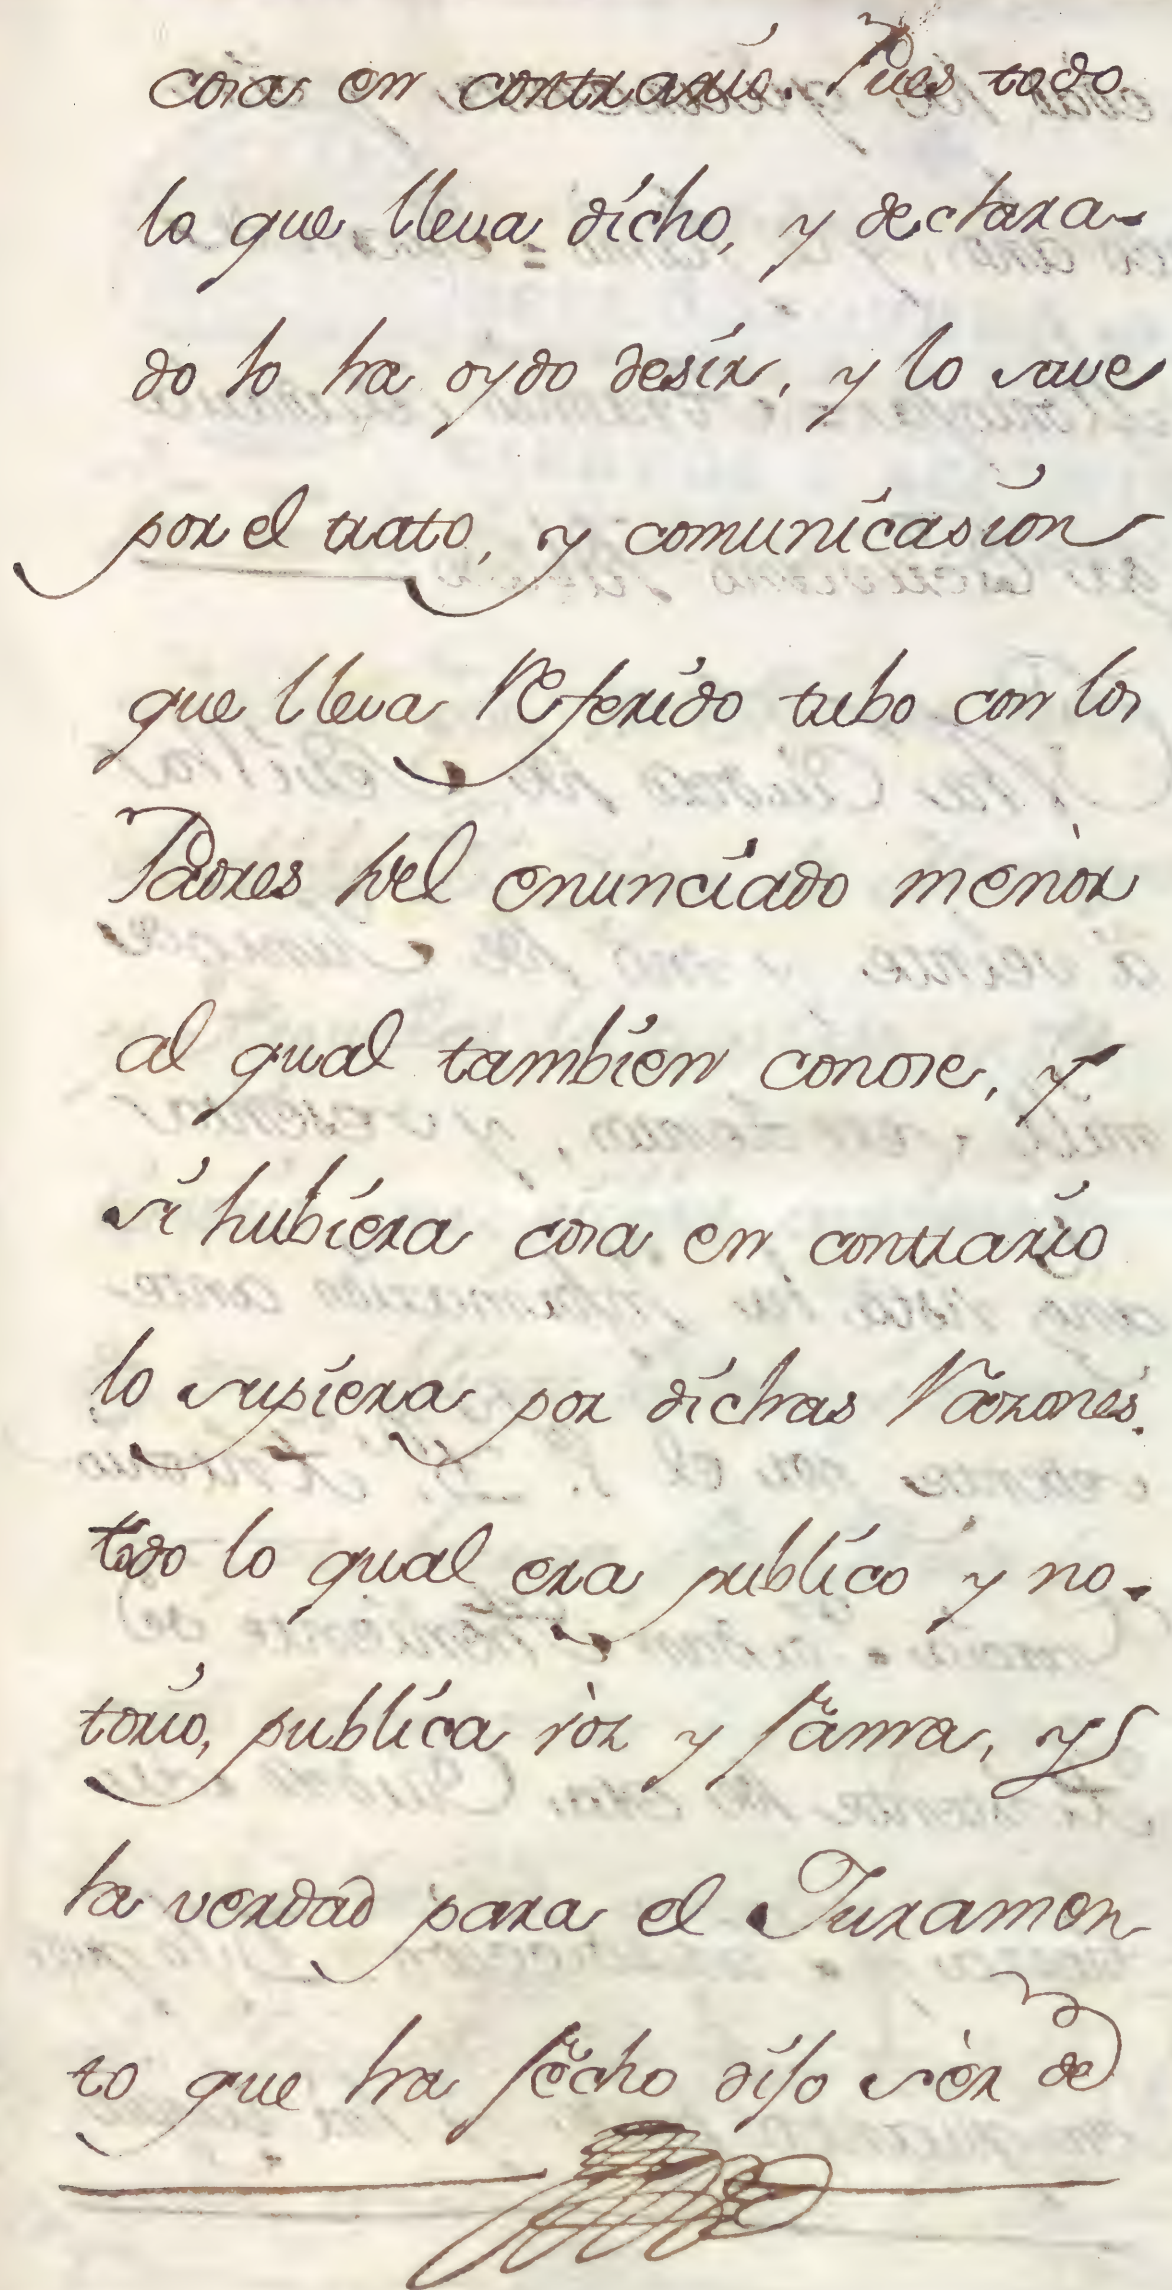 cosa en contrario. Pues todo
lo que lleua dicho, y declara-
do lo ha oydo desir, y lo saue
por el trato, y comunicasion
que lleua Referido tubo con los
Padres del enunciado menor
al qual tambien conose, y
si hubiera cosa en contrario
lo supiera por dichas Razones.
todo lo qual era publico y no-
torio, publica voz y fama, y
la verdad para el Juramen
to que ha fecho dijo ser de